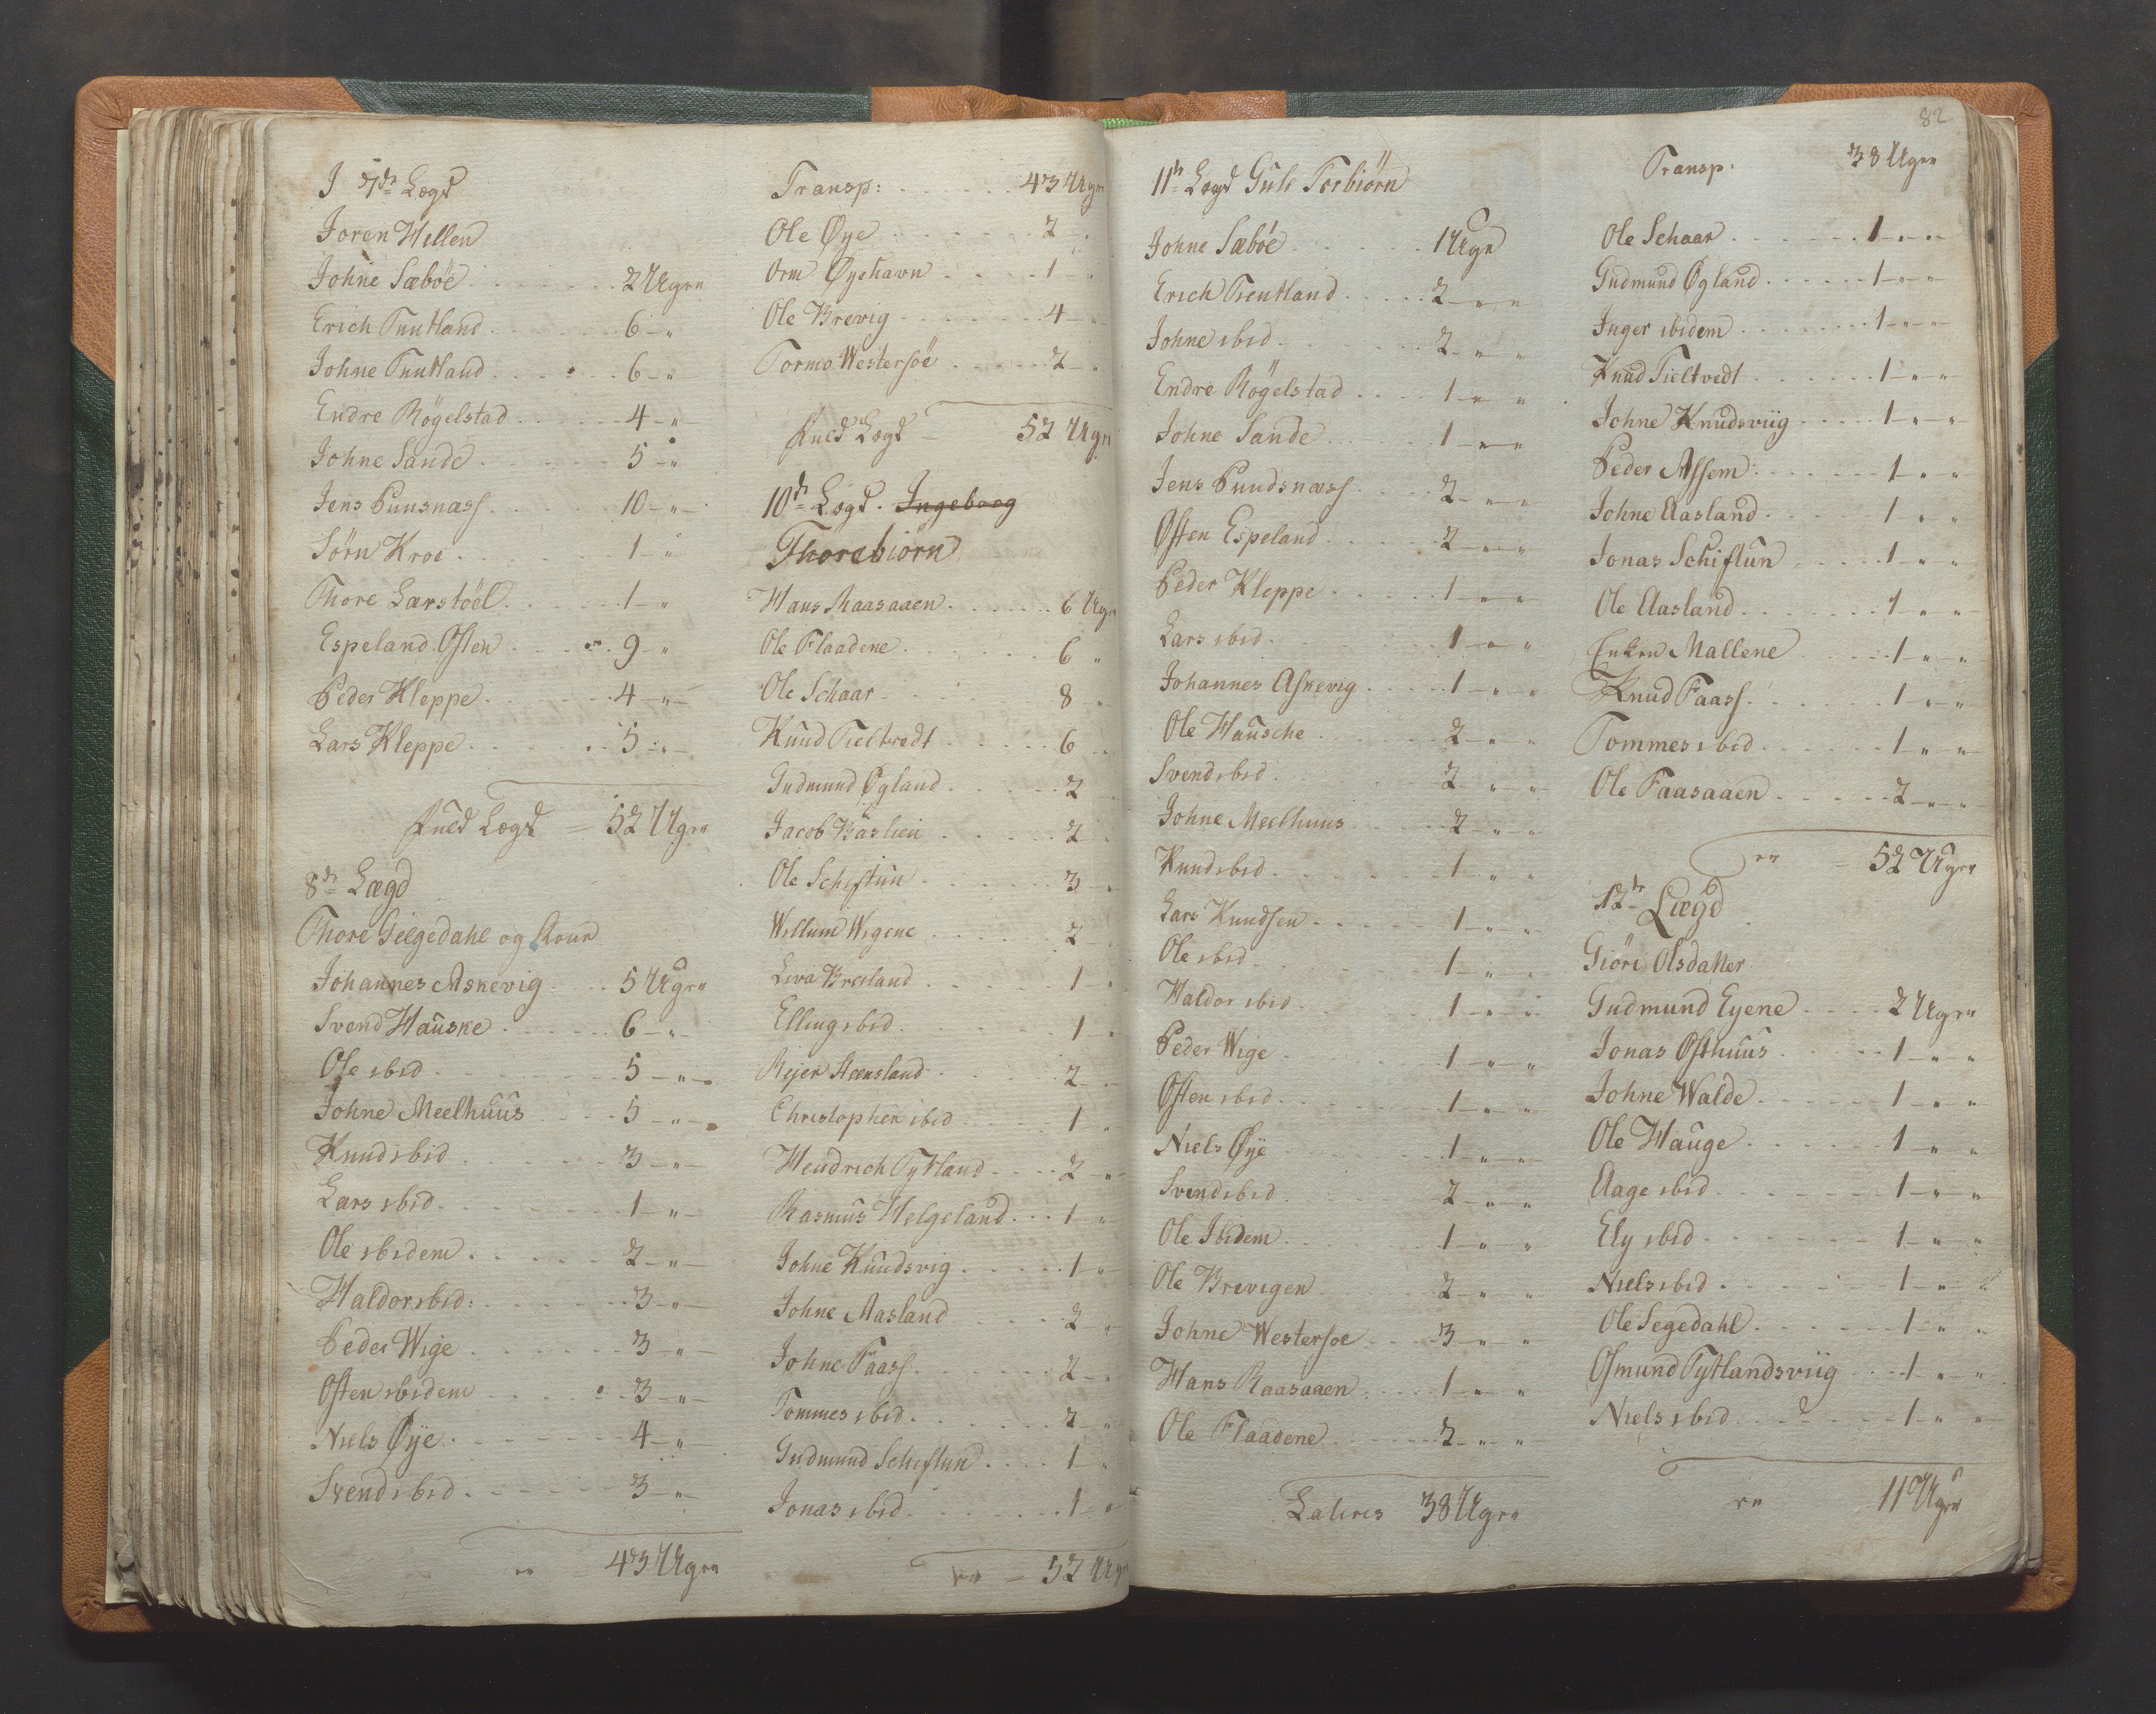 I 7de Lægd
Joren Hellen
Johne Sæbøe 2 Ugru
Erich Tuntland 6 - "
Johne Tuntland 6 - "
Endre Røgelstad 4 - "
Johne Sande 5 - "
Jens Puusnæss 10 - "
Sørn Kroe 1 - "
Thore Lærstöel 1 - "
Espeland Osten 9 - "
Peder Kleppe 4 - "
Lars Kleppe 5 - "
fuld Lægd = 52 Ugru
8de Lægd
Thore Seegedahl og Koun
Johannes Askevig 5 Ugru
Svend Hauske 6 - "
Ole ibid 5 - "
Johne Meelhuus 5 - "
Knud ibid 3 - "
Lars ibid 1 - "
Ole ibidem 2 - "
Haldor ibid: 3 - "
Peder Wige 3 - "
Osten ibidem 3 - "
Niels Øÿe 4 - "
Svend ibid 3 - "
= 43 Ugru
Transp: 43 Ugr
Ole Øye 2 - "
Orm Øyehavn 1 - "
Ole Brevig 4 - "
Tormo Westersöe 2 - "
fuld Lægd - 52 Ugr
10de Lægd. Ingeborg
Thorebiørn
Hans Raasaaen 6 Ugr
Ole Flaadene 6 "
Ole Schaar 8 "
Knud Tieltvedt 6 "
Gudmund Øgland 2
Jacob Baslien 2 "
Ole Schiftun 3 - "
Willum Wigene 2 - "
Liva Breiland 1 - "
Elling ibid 1 "
Rejer Steensland 2 - "
Christopher ibid 1 "
Hendrich Tytland 2 - "
Rasmus Helgeland 1 - "
Johne Knudsvig 1 "
Johne Aasland 2 "
Johne Faass 2 - "
Tommes ibid 2 "
Gudmund Schiftun 1 "
Jonas ibid 1 - "
= 52 Ugr
82
11te Lægd Gule Torbiörn
Johne Sæbøe 1 Ugr
Erich Tientland 2 - " "
Johne ibid 2 - " "
Endre Røgelstad 1 - " "
Johne Sande 1 - " "
Jens Puudsnæss 2 - " "
Osten Espeland 2 - " "
Peder Kleppe 1 - " "
Lars ibid 1 - " "
Johannes Askevig 1 - " "
Ole Hausche 2 - " "
Svend ibid 2 - " "
Johne Meelhuus 2 - " "
Knud ibid 1 - " "
Lars Knudsen 1 - " "
Ole ibid 1 - " "
Haldor ibid 1 - " "
Peder Wige 1 - " "
Osten ibid 1 - " "
Niels Øÿe 1 - " "
Svend ibid 2 - " "
Ole Ibidem 1 - " "
Ole Brevigen 2 - " "
Johne Westersoe 3 - " "
Hans Raasaaen 1 - " "
Ole Flaadene 2 - " "
Lateris 38 Ugru
Transp: 38 Ugru
Ole Schaar 1 - " "
Gudmund Øgland 1 - " "
Inger ibidem 1 - " "
Knud Tieltvedt 1 - " "
Johne Knudsviig 1 - " "
Peder Assem 1 - " "
Johne Aasland 1 - " "
Jonas Schiftun 1 - " "
Ole Aasland 1 - " "
Enken Mallene 1 - " "
Knud Faass 1 - " "
Tommes ibid 1 - " "
Ole Faasaaen 2 - " "
52 Ugru
12te Lægd
Giöri Olsdatter
Gudmund Eyene 2 Ugru
Jonas Østhuus 1 - " "
Johne Walde 1 - " "
Ole Hauge 1 - " "
Aage ibid 1 - " "
Ely ibid 1 - " "
Niels ibid 1 - " "
Ole Segedahl 1 - " "
Osmund Tytlandsviig 1 - " "
Niels ibid 1 - " "
11 Ugru